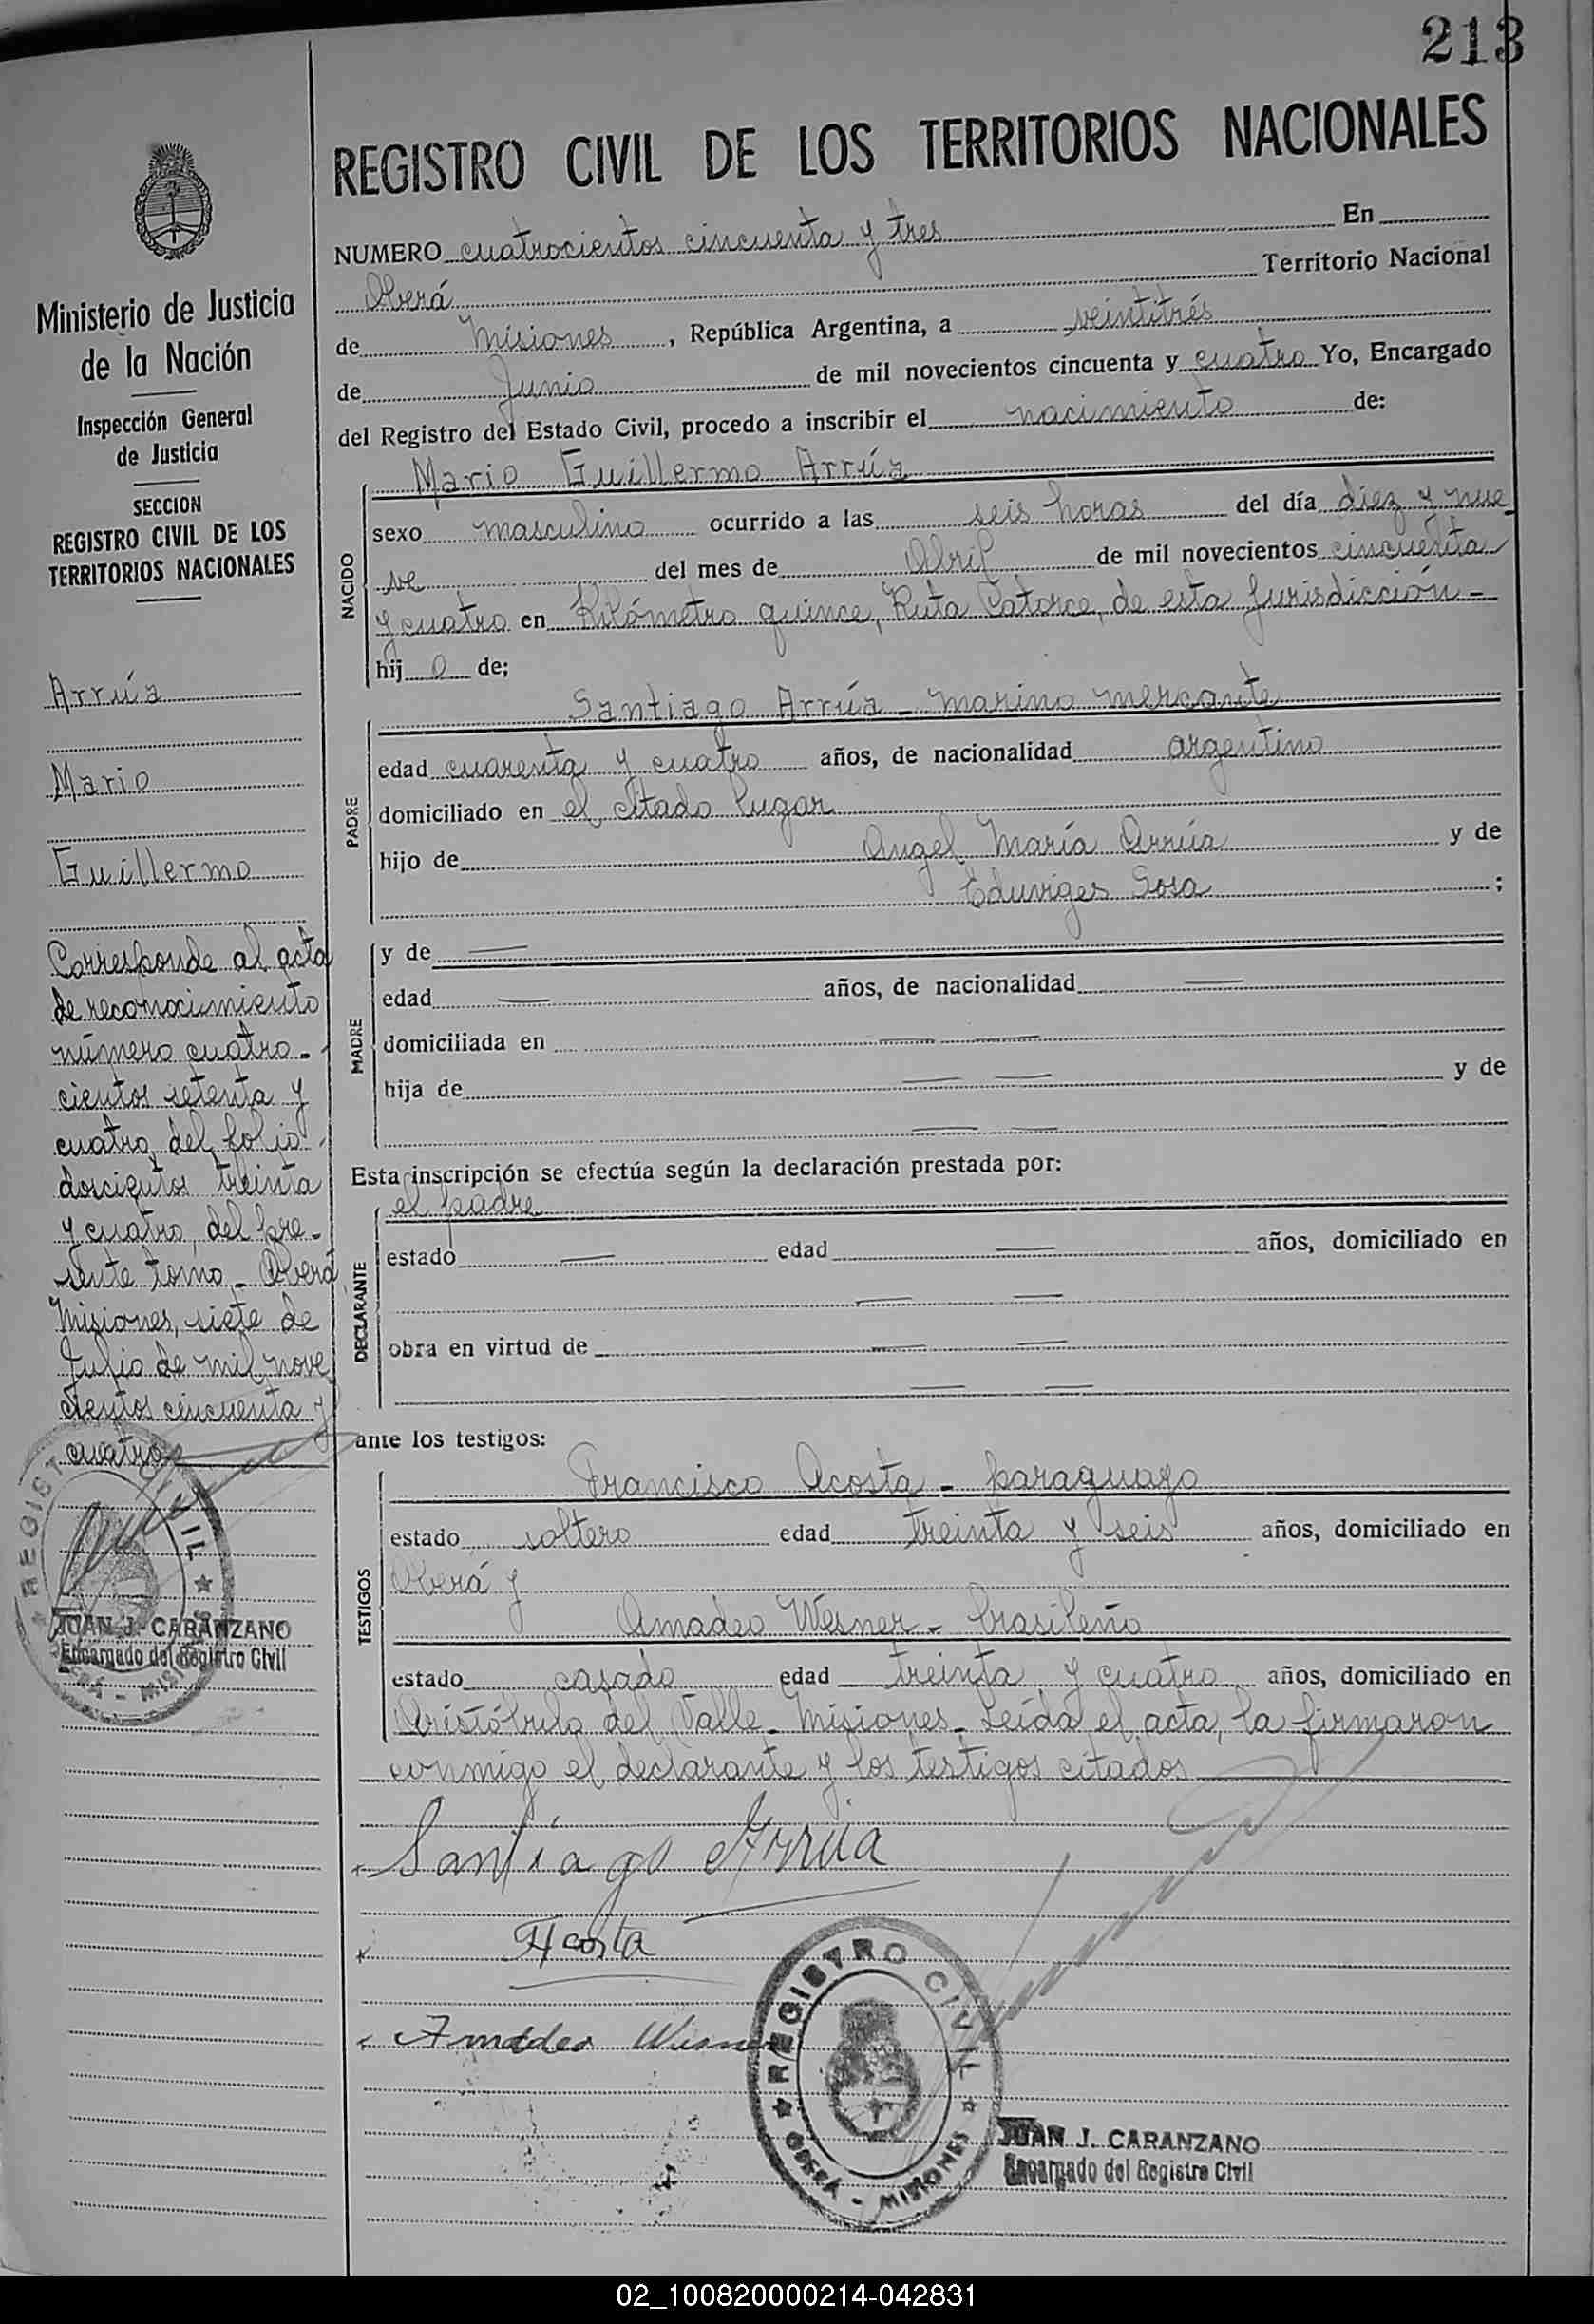 213
REGISTRO CIVIL DE LOS TERRITORIOS NACIONALES
Ministerio de Justicia
de la Nación
Inspección General
de Justicia
SECCION
REGISTRO CIVIL DE LOS
TERRITORIOS NACIONALES
Arrúa
Mario
Guillermo
Corresponde al acta
de reconocimiento
número cuatro-
cientos setenta y
cuatro, del folio
doscientos treinta
y cuatro, del pre-
sente tomo - Oberá
Misiones, siete de
Julio de mil nove
cientos cincuenta y
cuatro
REGISTRO CIVIL
JUAN J. CARANZANO
Encargado del Registro Civil
NUMERO cuatrocientos cincuenta y tres En
Oberá Territorio Nacional
de Misiones, República Argentina, a veintitrés
de Junio de mil novecientos cincuenta y cuatro Yo, Encargado
del Registro del Estado Civil, procedo a inscribir el nacimiento de:
NACIDO
Mario Guillermo Arrúa
sexo masculino ocurrido a las seis horas del día diez y nue
ve del mes de Abril de mil novecientos cincuenta
y cuatro en Kilómetro quince, Ruta Catorce, de esta Jurisdicción -
hij o de;
PADRE
Santiago Arrúa - marino mercante
edad cuarenta y cuatro años, de nacionalidad argentino
domiciliado en el citado lugar
hijo de Angel María Arrúa y de
Eduviges Sosa ;
MADRE
y de
edad años, de nacionalidad
domiciliada en
hija de y de
Esta inscripción se efectúa según la declaración prestada por:
DECLARANTE
el padre
estado edad años, domiciliado en
obra en virtud de
ante los testigos:
TESTIGOS
Francisco Acosta - paraguayo
estado soltero edad treinta y seis años, domiciliado en
Oberá y
Amadeo Wesner - brasileño
estado casado edad treinta y cuatro años, domiciliado en
Aristóbulo del Valle - Misiones - Leída el acta, la firmaron
conmigo el declarante y los testigos citados
Santiago Arrua
FAcosta
Amadeo Wesner
REGISTRO CIVIL
OBERÁ - MISIONES
JUAN J. CARANZANO
Encargado del Registro Civil
02_100820000214-042831